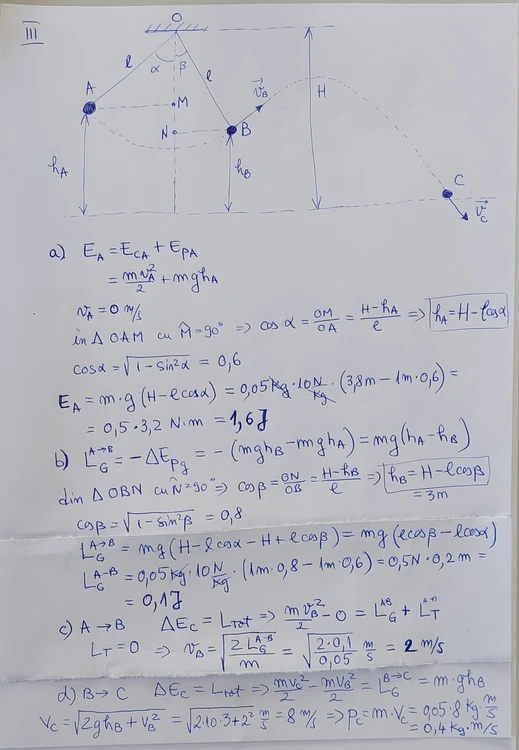 III
O
l
α
β
l
A
M
H
v⃗_B
N
B
h_A
h_B
C
v⃗_C
a) E_A = E_CA + E_PA
= mv_A²/2 + mgh_A
v_A = 0 m/s
in Δ OAM cu M̂ = 90° => cos α = OM/OA = (H-h_A)/l => h_A = H - l cos α
cos α = √(1 - sin²α) = 0,6
E_A = m·g (H - l cos α) = 0,05 kg · 10 N/kg · (3,8m - 1m·0,6) =
= 0,5 · 3,2 N·m = 1,6 J
b) L_G^{A→B} = -ΔE_pg = -(mgh_B - mgh_A) = mg(h_A - h_B)
din Δ OBN cu N̂ = 90° => cos β = ON/OB = (H-h_B)/l => h_B = H - l cos β
= 3m
cos β = √(1 - sin²β) = 0,8
L_G^{A→B} = mg(H - l cos α - H + l cos β) = mg(l cos β - l cos α)
L_G^{A-B} = 0,05 kg · 10 N/kg · (1m·0,8 - 1m·0,6) = 0,5N · 0,2 m =
= 0,1 J
c) A → B ΔE_C = L_tot => mv_B²/2 - 0 = L_G^{AB} + L_T^{AB}
L_T = 0 => v_B = √(2 L_G^{A-B}/m) = √(2·0,1/0,05) m/s = 2 m/s
d) B → C ΔE_C = L_tot => mv_C²/2 - mv_B²/2 = L_G^{B→C} = m·gh_B
v_C = √(2gh_B + v_B²) = √(2·10·3 + 2²) m/s = 8 m/s => p_C = m·v_C = 0,05·8 kg·m/s
= 0,4 kg·m/s